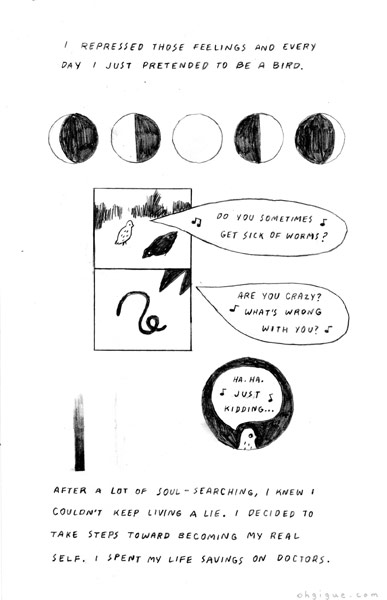 I REPRESSED THOSE FEELINGS AND EVERY
DAY I JUST PRETENDED TO BE A BIRD.
DO YOU SOMETIMES
GET SICK OF WORMS?
ARE YOU CRAZY?
WHAT'S WRONG
WITH YOU?
HA. HA.
JUST
KIDDING...
AFTER A LOT OF SOUL-SEARCHING, I KNEW I
COULDN'T KEEP LIVING A LIE. I DECIDED TO
TAKE STEPS TOWARD BECOMING MY REAL
SELF. I SPENT MY LIFE SAVINGS ON DOCTORS.
ohgigue.com